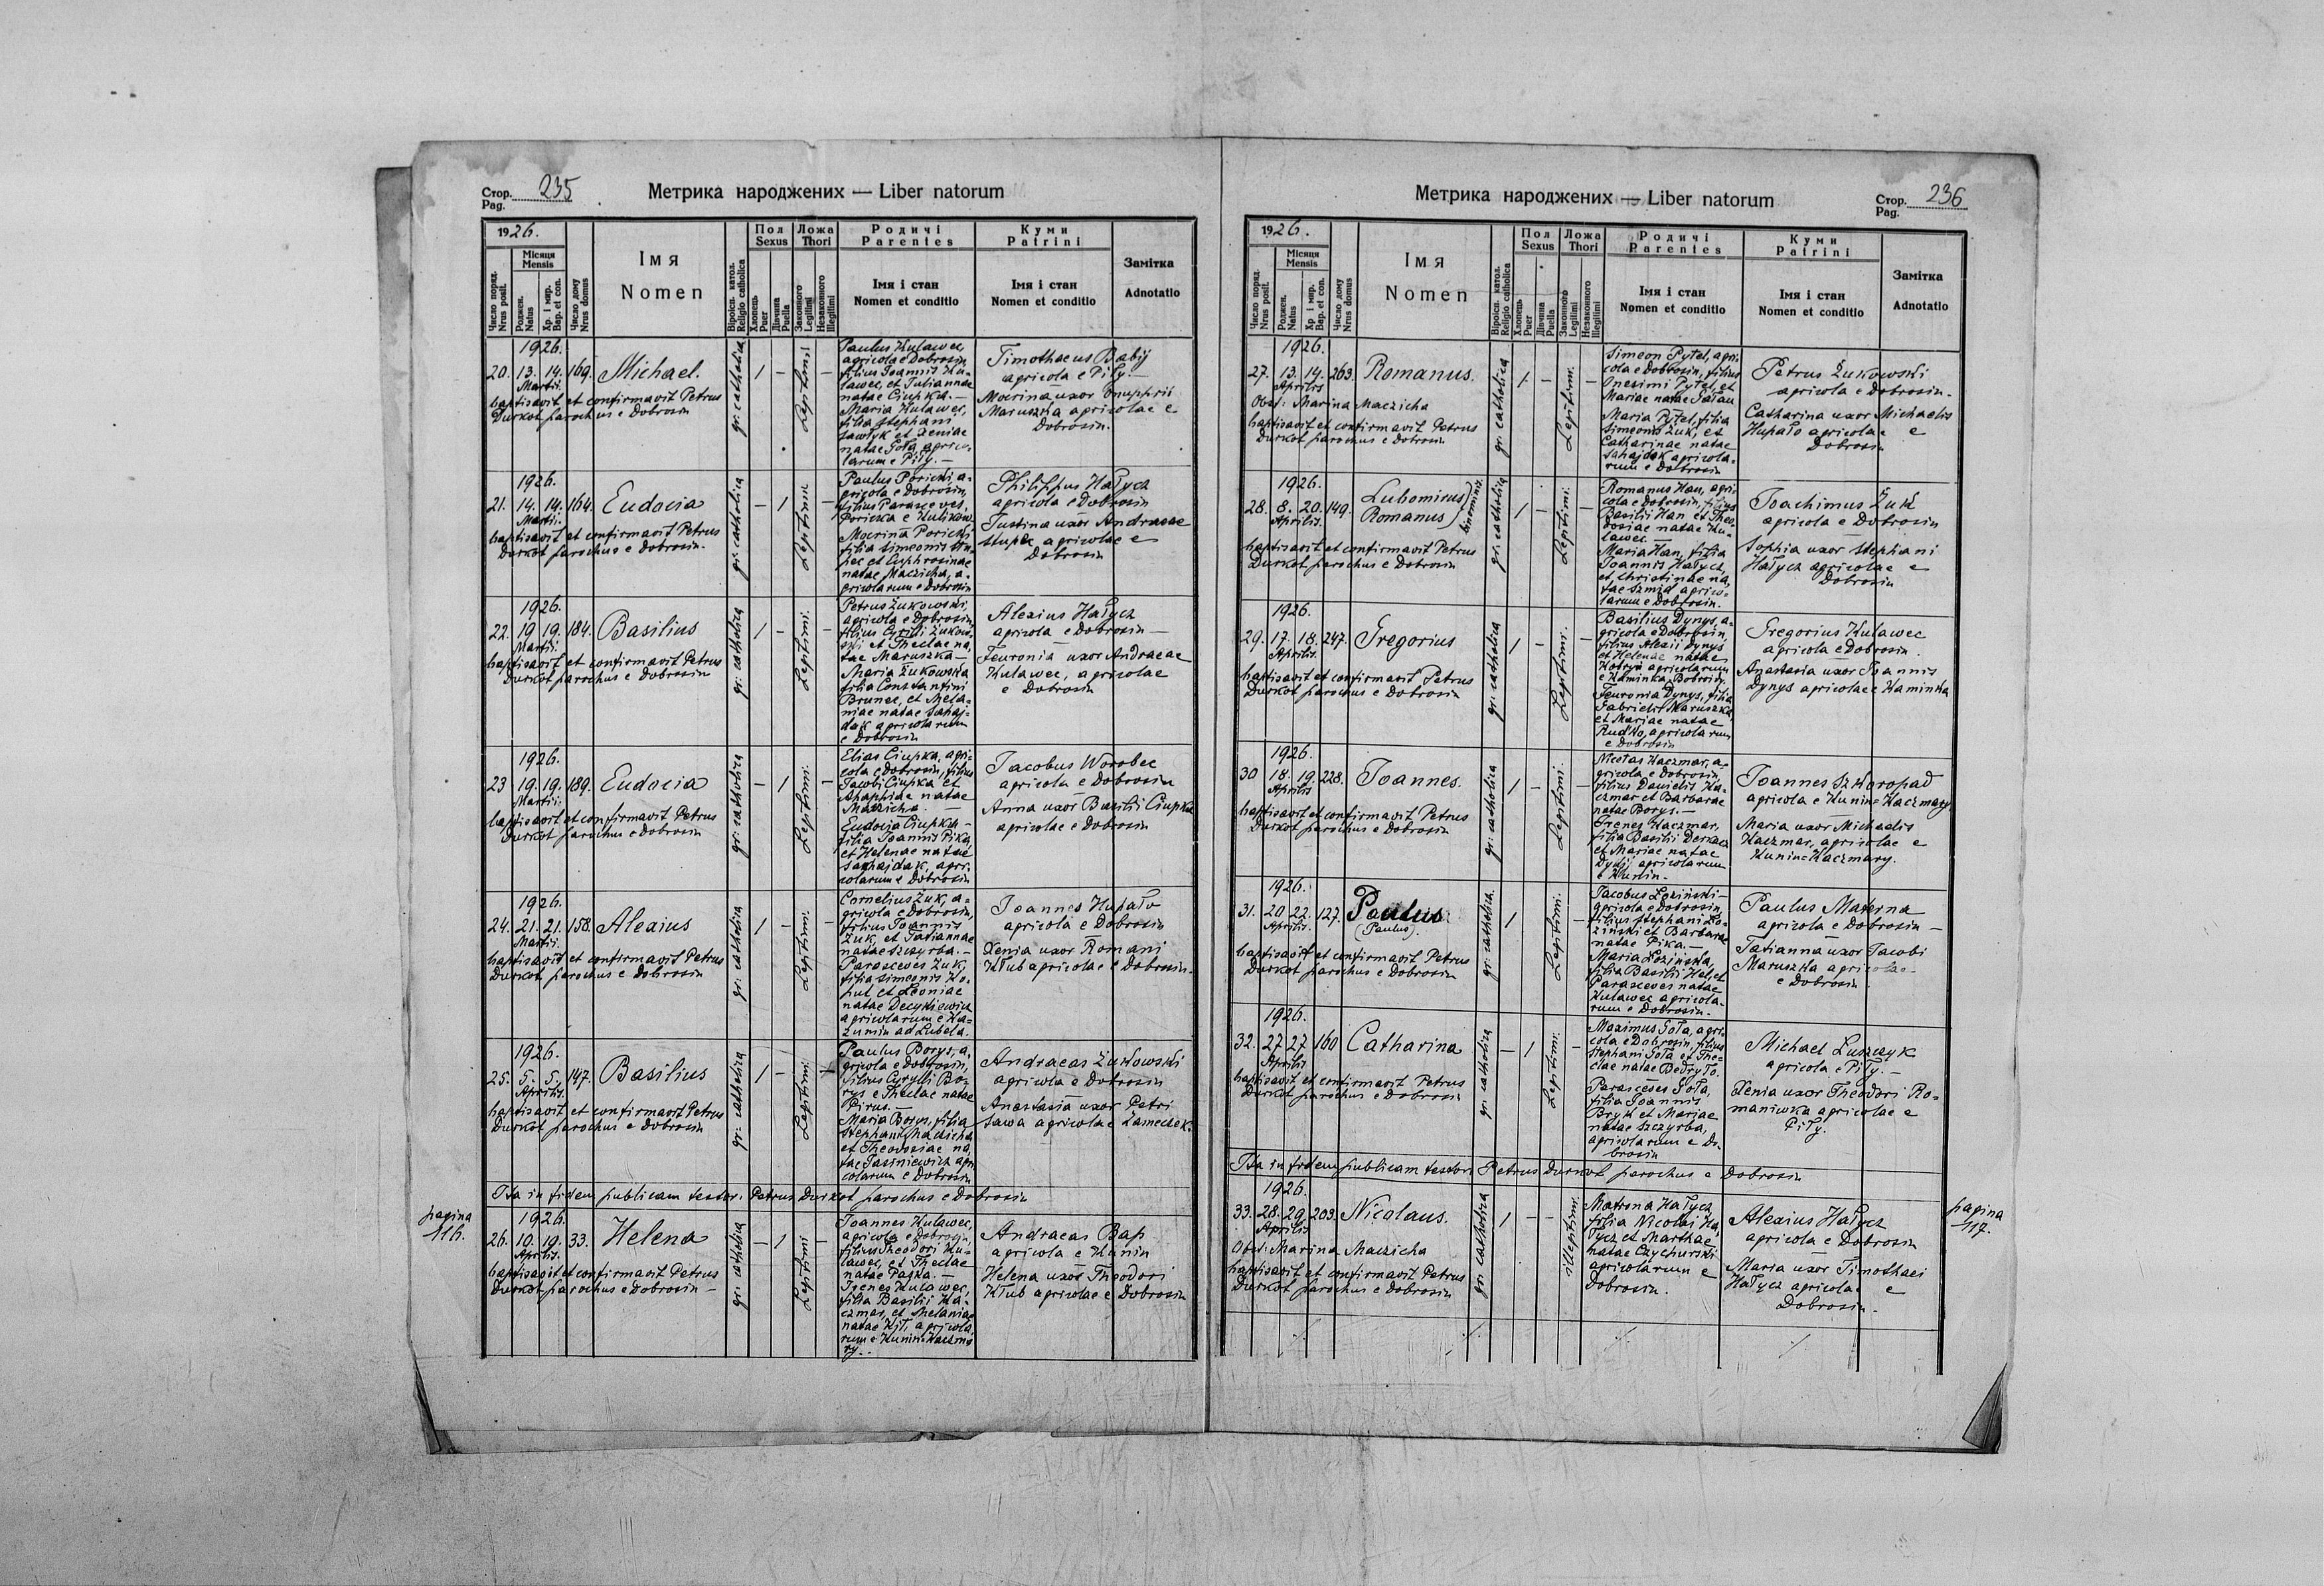 Стор. 235
Pag.
Метрика народжених — Liber natorum
1926.
Число поряд.
Nrus posit.
Місяця
Mensis
Роджен.
Natus
Хр. і мир.
Bap. et con.
Число дому
Nrus domus
Імя
Nomen
Віроісп. катол.
Religio catholica
Пол
Sexus
Хлопець
Puer
Дівчина
Puella
Ложа
Thori
Законного
Legitimi
Незаконного
Illegitimi
Родичі
Parentes
Імя і стан
Nomen et conditio
Куми
Patrini
Імя і стан
Nomen et conditio
Замітка
Adnotatio
1926.
20. 13. 14. 169. Michael.
Martii.
baptisavit et confirmavit Petrus
Durkot parochus e Dobrosin
gr. catholica
1 – Legitimi –
Paulus Kulawec,
agricola e Dobrosin,
filius Joannis Ku-
lawec, et Juliannae
natae Ciupka. —
Maria Kulawec,
filia Stephani
Sawlyk et Xeniae
natae Gola, agrico-
larum e Piły. —
Timothaeus Babij
agricola e Piły. —
Mocrina uxor Onuphrii
Maruszka agricolae e
Dobrosin.
1926.
21. 14. 14. 164. Eudocia
Martii.
baptisavit et confirmavit Petrus
Durkot parochus e Dobrosin.
gr. catholica
– 1 Legitimi –
Paulus Poricki, a-
gricola e Dobrosin,
filius Parasceves,
Poricka e Kulikow.
Mocrina Poricki
filia Simeonis Stu-
pec et Euphrosinae
natae Maczicha, a-
gricolarum e Dobrosin
Philippus Hałycz
agricola e Dobrosin
Justina uxor Andraeae
Stupec agricolae e
Dobrosin
1926.
22. 19 19. 184. Basilius
Martii.
baptisavit et confirmavit Petrus
Durkot parochus e Dobrosin
gr. catholica
1 – Legitimi. –
Petrus Żukowski,
agricola e Dobrosin,
filius Cyrilli Żukow-
ski et Theclae na-
tae Maruszka —
Maria Żukowska
filia Constantini
Brunec, et Mela-
niae natae Sahaj-
dak agricolarum
e Dobrosin
Alexius Hałycz
agricola e Dobrosin —
Feuronia uxor Andraeae
Kulawec, agricolae
e Dobrosin
1926.
23 19. 19. 189. Eudocia
Martii.
baptisavit et confirmavit Petrus
Durkot parochus e Dobrosin
gr. catholica
– 1 Legitimi. –
Elias Ciupka, agri-
cola e Dobrosin, filius
Jacobi Ciupka et
Ahaphiae natae
Maczicha. —
Eudocia Ciupka —
filia Joannis Pika,
et Helenae natae
Sahajdak, agri-
colarum e Dobrosin
Jacobus Worobec
agricola e Dobrosin
Anna uxor Basilii Ciupka
agricolae e Dobrosin
1926.
24. 21. 21. 158. Alexius
Martii.
baptisavit et confirmavit Petrus
Durkot parochus e Dobrosin
gr. catholica
1 – Legitimi. –
Cornelius Żuk, a-
gricola e Dobrosin,
filius Joannis
Żuk, et Tatiannae
natae Szczyrba. —
Parasceves Żuk,
filia Simeonis Ko-
hut et Leoniae
natae Decykiewicz
agricolarum e Ka-
zumin ad Lubela.
Joannes Hupało
agricola e Dobrosin
Xenia uxor Romani
Kłub agricolae e Dobrosin.
1926.
25. 5. 5. 147. Basilius
Aprilis.
baptisavit et confirmavit Petrus
Durkot parochus e Dobrosin
gr. catholica
1 – Legitimi. –
Paulus Borys, a-
gricola e Dobrosin,
filius Cyrylli Bo-
rys e Theclae natae
Pirus. —
Maria Borys, filia
Stephani Maczicha
et Theodosiae na-
tae Jasiniewicz agri-
colarum e Dobrosin
Andraeas Żukowski
agricola e Dobrosin
Anastasia uxor Petri
Sawa agricolae Zameczek.
Ita in fidem publicam testor: Petrus Durkot parochus e Dobrosin
pagina
116.
1926.
26. 10. 19. 33. Helena
Aprilis.
baptisavit et confirmavit Petrus
Durkot parochus e Dobrosin —
gr. catholica
– 1 Legitimi –
Joannes Kulawec,
agricola e Dobrosin,
filius Theodori Ku-
lawec, et Theclae
natae Paska. —
Irenes Kulawec,
filia Basilii Ka-
czmar, et Melaniae
natae Kił, agricola-
rum e Kunin=Kaczma-
ry..
Andraeas Bap
agricola e Kunin
Helena uxor Theodori
Kłub agricolae e Dobrosin
Метрика народжених — Liber natorum
Стор. 236
Pag.
1926.
Число поряд.
Nrus posit.
Місяця
Mensis
Роджен.
Natus
Хр. і мир.
Bap. et con.
Число дому
Nrus domus
Імя
Nomen
Віроісп. катол.
Religio catholica
Пол
Sexus
Хлопець
Puer
Дівчина
Puella
Ложа
Thori
Законного
Legitimi
Незаконного
Illegitimi
Родичі
Parentes
Імя і стан
Nomen et conditio
Куми
Patrini
Імя і стан
Nomen et conditio
Замітка
Adnotatio
1926.
27. 13. 14. 263. Romanus.
Aprilis
Obst: Marina Maczicha
baptisavit et confirmavit Petrus
Durkot parochus e Dobrosin
gr. catholica
1 – Legitimi. –
Simeon Pytel, agri-
cola e Dobrosin, filius
Onesimi Pytel, et
Mariae natae Sałan
Maria Pytel, filia
Simeonis Żuk, et
Catharinae natae
Sahajdak agricola-
rum e Dobrosin
Petrus Żukowski
agricola e Dobrosin.
Catharina uxor Michaelis
Hupało agricolae e
Dobrosin
1926.
28. 8. 20. 149. Lubomirus
Romanus) binominis
Aprilis.
baptisavit et confirmavit Petrus
Durkot parochus e Dobrosin
gr. catholica
1 – Legitimi. –
Romanus Han, agri-
cola e Dobrosin, filius
Basilii Han et Theo-
dosiae natae Ku-
lawec. —
Maria Han, filia
Joannis Hałycz,
et, Christinae na-
tae Szmid agrico-
larum e Dobrosin.
Joachimus Żuk
agricola e Dobrosin
Sophia uxor Stephani
Hałycz agricolae e
Dobrosin
1926.
29. 17. 18. 247. Gregorius
Aprilis.
baptisavit et confirmavit Petrus
Durkot parochus e Dobrosin
gr. catholica
1 – Legitimi. –
Basilius Dynys, a-
gricola e Dobrosin,
filius Alexii Dynys
et Helenae natae
Kotryn agricolarum
e Kaminka,
Feuronia Dynys, filia
Gabrielis Maruszka,
et Mariae natae
Rudko, agricolarum
e Dobrosin
Gregorius Kulawec
agricola e Dobrosin.
Anastasia uxor Joannis
Dynys agricolae e Kaminka
1926.
30 18. 19. 228. Joannes.
Aprilis
baptisavit et confirmavit Petrus
Durkot parochus e Dobrosin
gr. catholica
1 – Legitimi. –
Nicetas Kaczmar, a-
gricola e Dobrosin,
filius Danielis Ka-
czmar et Barbarae
natae Borys. —
Irenes Kaczmar,
filia Basilii Derkacz
et Mariae natae
Dykij agricolarum
e Kunin.
Joannes Szkoropad
agricola e Kunin=Kaczmary.
Maria uxor Michaelis
Kaczmar, agricolae e
Kunin=Kaczmary.
1926.
31. 20 22. 127. Paulus
(Paulus).
Aprilis.
baptisavit et confirmavit Petrus
Durkot parochus e Dobrosin
gr. catholica.
1 Legitimi. –
Jacobus Łoziński —
agricola e Dobrosin,
filius Stephani Ło-
ziński et Barbarae
natae Pika. —
Maria Łozińska,
filia Basilii Hel, et
Parasceves natae
Kulawec agricola-
rum e Dobrosin.
Paulus Materna
agricola e Dobrosin —
Tatianna uxor Jacobi
Maruszka agricolae
e Dobrosin.
1926.
32. 27 27 160 Catharina
Aprilis
baptisavit et confirmavit Petrus
Durkot parochus e Dobrosin
gr. catholica
– 1 Legitimi. –
Maximus Gola, agri-
cola e Dobrosin, filius
Stephani Gola et The-
clae natae Bedryło.
Parasceves Gola,
filia Joannis
Bryk et Mariae
natae Szczyrba,
agricolarum e Do-
brosin
Michael Łuszczyk
agricola e Piły. —
Xenia uxor Theodori Ro-
maniwka agricolae e
Piły.
Ita in fidem publicam testor: Petrus Durkot parochus e Dobrosin
1926.
33. 28. 29. 203. Nicolaus.
Aprilis
Obst: Marina Maczicha
baptisavit et confirmavit Petrus
Durkot parochus e Dobrosin
gr. catholica
1 – – illegitimi.
Matrona Hałycz
filia Nicolai Ha-
łycz et Marthae
natae Czychurski
agricolarum e
Dobrosin.
Alexius Hałycz
agricola e Dobrosin
Maria uxor Timothaei
Hałycz agricolae e
Dobrosin.
pagina
117.